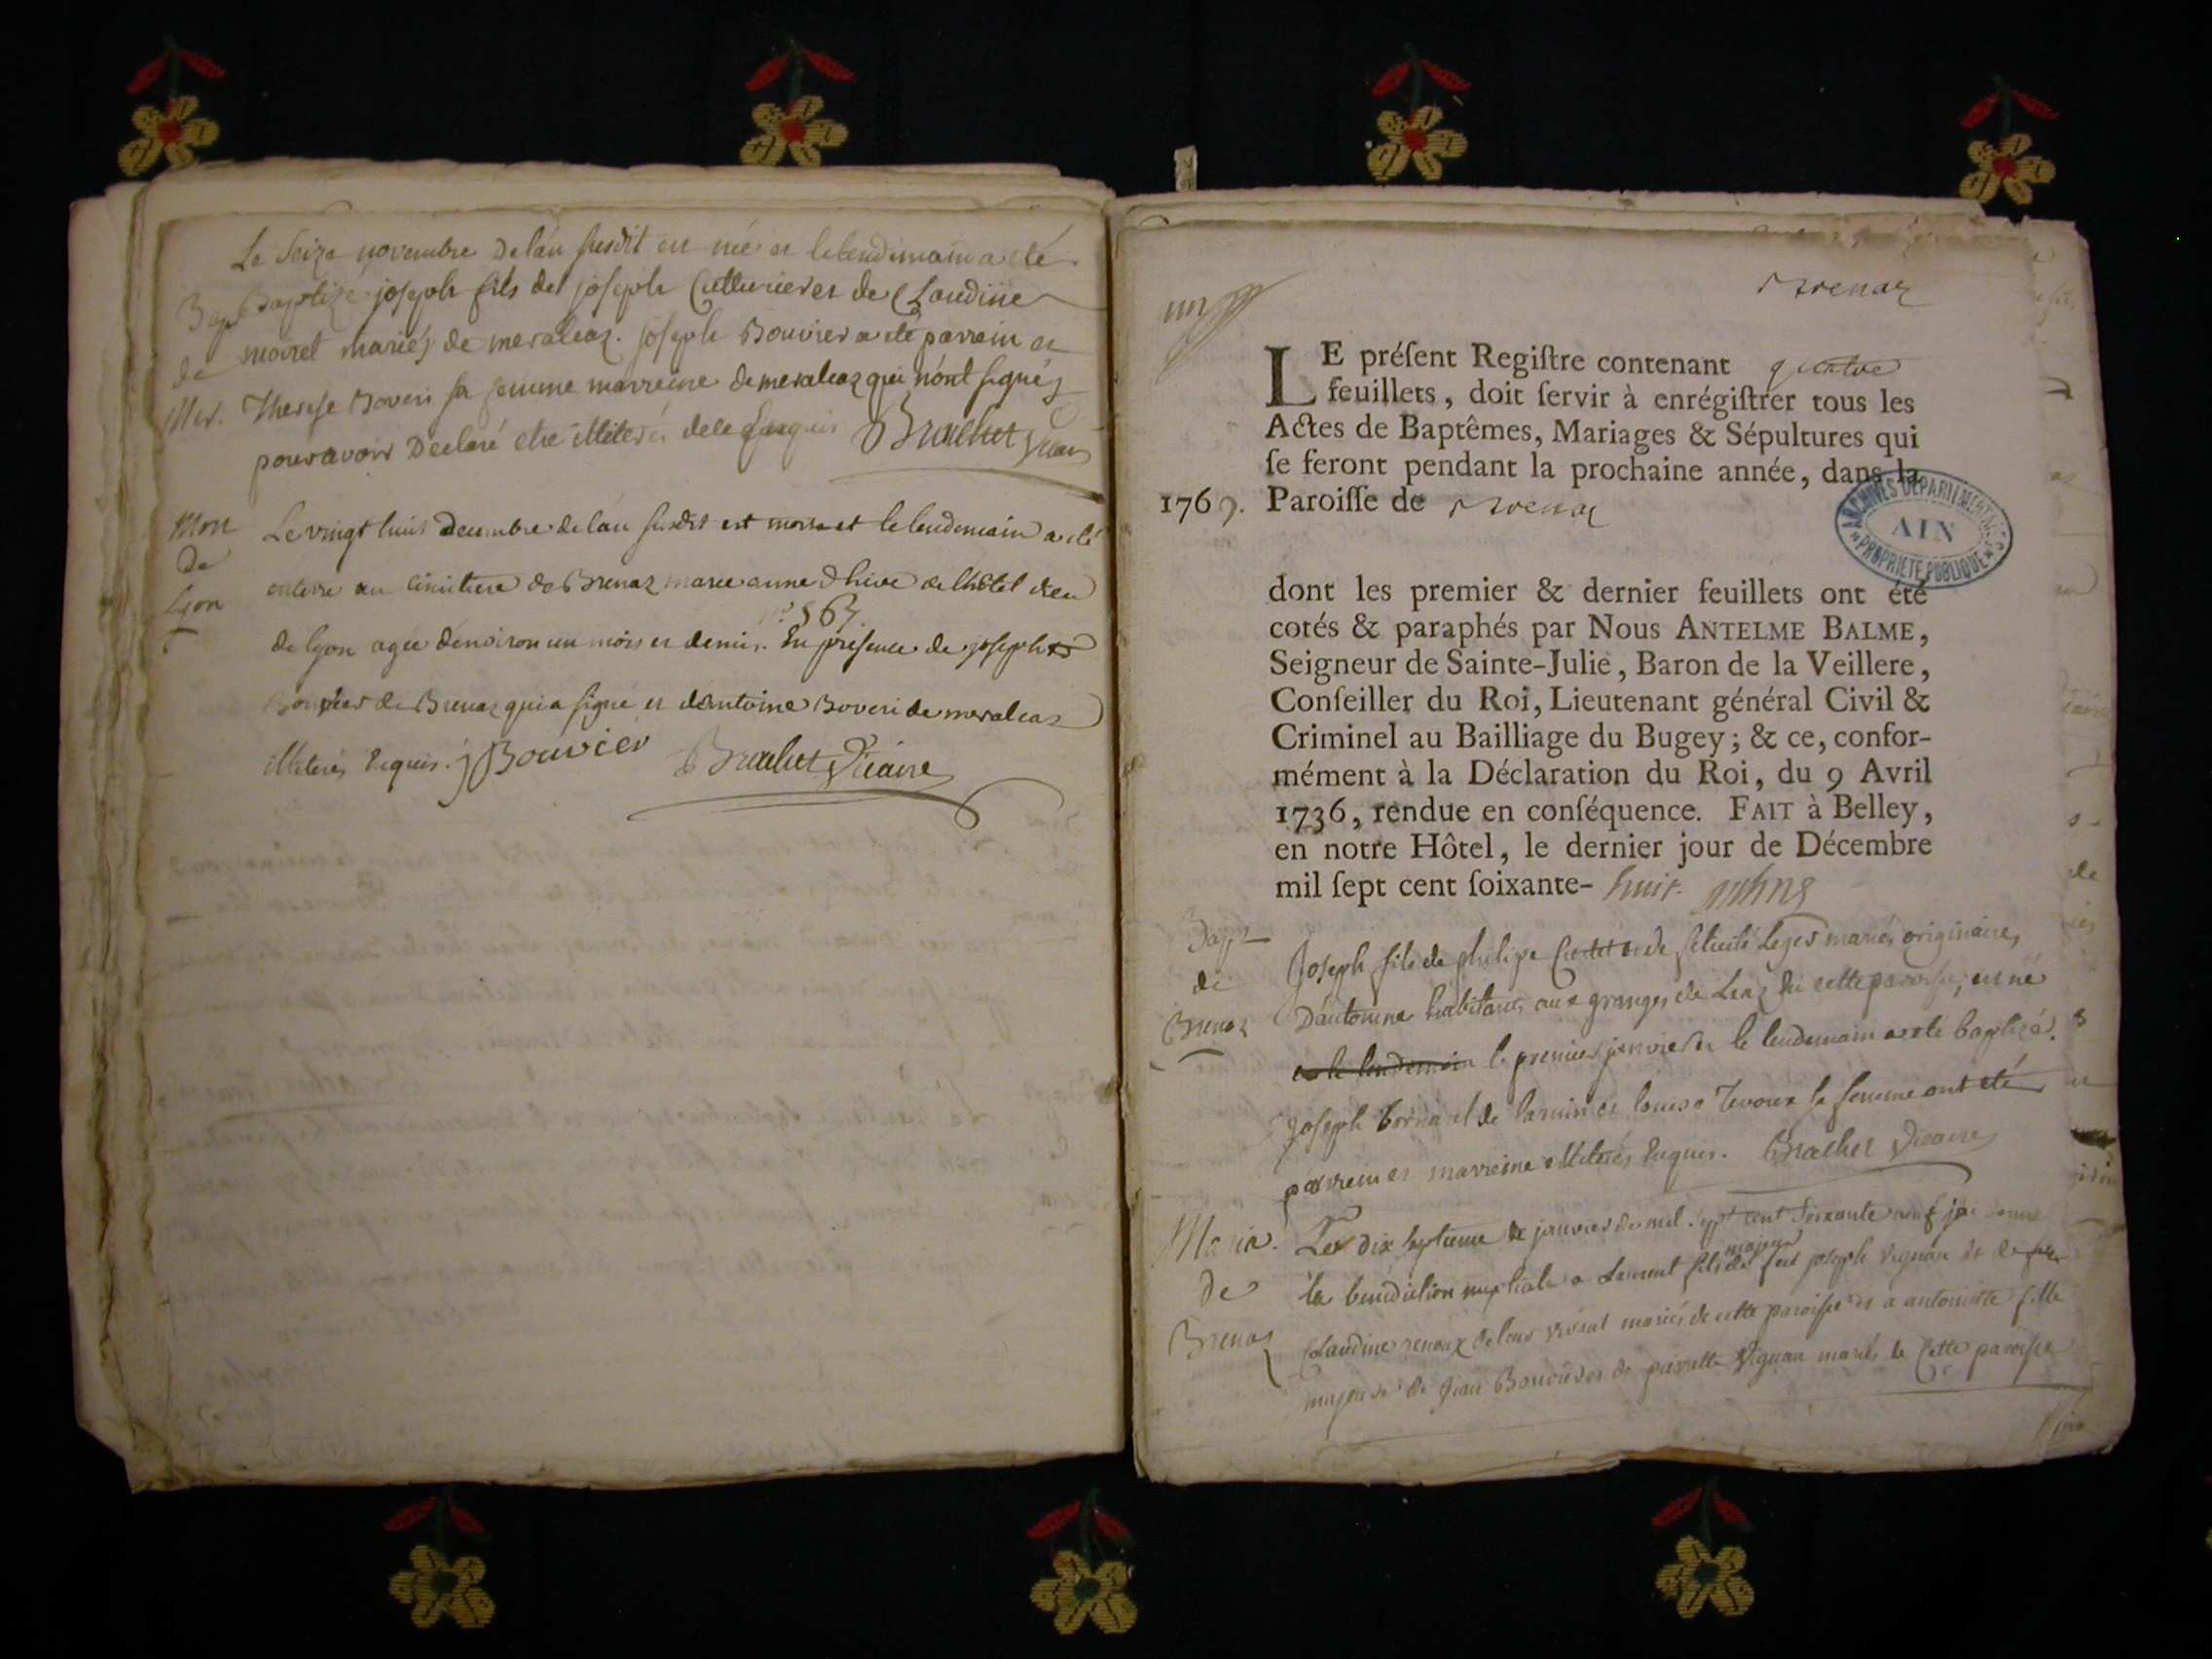 Le seize novembre de l'an susdit est né et le lendemain a été
Bapt baptizé joseph fils de joseph Cutturier et de Claudine
de moiret mariés de meraleaz. joseph Bouvier a été parrein et
Mer. Therese Boveri sa femme marreine de meraleaz qui n'ont signés
pour avoir declaré etre illiterés de ce enquis Brachet vicaire
Mor Le vingt huit decembre de l'an susdit est morte et le lendemain a été
de
Lyon
enterré au cimitiere de Brenaz marie anne d'hive de l'hôtel dieu
de lyon agée d'environ un mois et demis. En presence de joseph
Bouvier de Brenaz qui a signé et d'antoine Boveri de meraleaz
illiterés enquis. j Bouvier Brachet Vicaire
un
Brenaz
LE préſent Regiſtre contenant quatre
feuillets, doit ſervir à enrégiſtrer tous les
Actes de Baptêmes, Mariages & Sépultures qui
ſe feront pendant la prochaine année, dans la
1769. Paroiſſe de Brenaz
ARCHIVES DÉPARTEMENTALES
AIN
PROPRIÉTÉ PUBLIQUE
dont les premier & dernier feuillets ont été
cotés & paraphés par Nous ANTELME BALME,
Seigneur de Sainte-Julie, Baron de la Veillere,
Conſeiller du Roi, Lieutenant général Civil &
Criminel au Bailliage du Bugey; & ce, confor-
mément à la Déclaration du Roi, du 9 Avril
1736, rendue en conſéquence. FAIT à Belley,
en notre Hôtel, le dernier jour de Décembre
mil ſept cent ſoixante- huit.
Bapt
de
Brenaz
Joseph fils de philipe et de felicité Leger mariés originaires
D'autonne habitants aux granges de Leaz de cette paroisse, est né
et le lendemain le premier janvier et le lendemain a été baptizé.
joseph et de et louise sa femme ont été
parrein et marreine illiterés enquis. Brachet Vicaire
Maria.
de
Brenaz
Le dix septieme de janvier de mil sept cent soixante neuf j'ai donné
la benediction nuptiale a Laurent fils majeur de feu joseph vignau et de
Claudine renoux de leur vivant mariés de cette paroisse et a antoinette fille
majeure de jean Bouvier et de pierrette vignau mariés de Cette paroisse